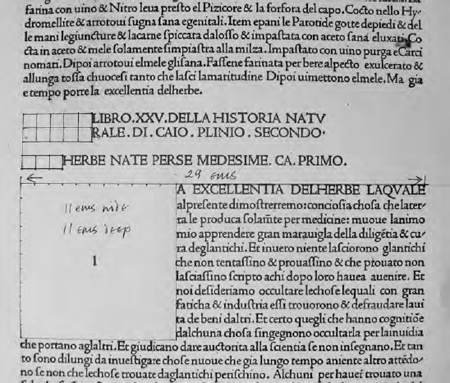 farina con uino & Nitro leua presto el Pizicore & la forfora del capo. Cocto nello Hy
dromellite & arrotoui sugna sana egenitali. Item epani le Parotide gotte depiedi & del
le mani legiuncture & lacarne spiccara dalosso & impastata con aceto sana eluxati. Co
cta in aceto & mele solamente simpiastra alla milza. Impastato con uino purga eCarci
nomati. Dipoi arrotoui elmele ghsana. Fassene farinata per bere alpecto exulcerato &
allunga tossa chuocesi tanto che lasci lamaritudine Dipoi uimettono elmele. Ma gia
e tempo porre la excellentia delherbe.
LIBRO.XXV.DELLA HISTORIA NATV
RALE.DI.CAIO.PLINIO.SECONDO.
HERBE NATE PERSE MEDESIME. CA. PRIMO.
29 ems
11 ems wide
11 ems deep
1
A EXCELLENTIA DELHERBE LAQVALE
alpresente dimosterremo: conciosia chosa che later
ra le produca solamẽte per medicine: muoue lanimo
mio apprendere gran marauigla della diligẽtia & cu
ra deglantichi. Et inuero niente lasciorono glantichi
che non tentassino & prouassino & che prouato non
lasciassino scripto achi dopo loro hauea auenire. Et
noi desideriamo occultare lechose lequali con gran
faticha & industria essi trouorono & defraudare laui
ta de beni daltri. Et certo quegli che hanno cognitiõe
dalchuna chosa singegnono occultarla per lainuidia
che portano aglaltri. Et giudicano dare auctorita alla scientia se non insegnano. Et tan
to sono dilungi da inuestigare chose nuoue che gia lungo tempo aniente altro attẽdo
no se non che lechose trouate deglantichi perischino. Alchuni per hauer trouato una